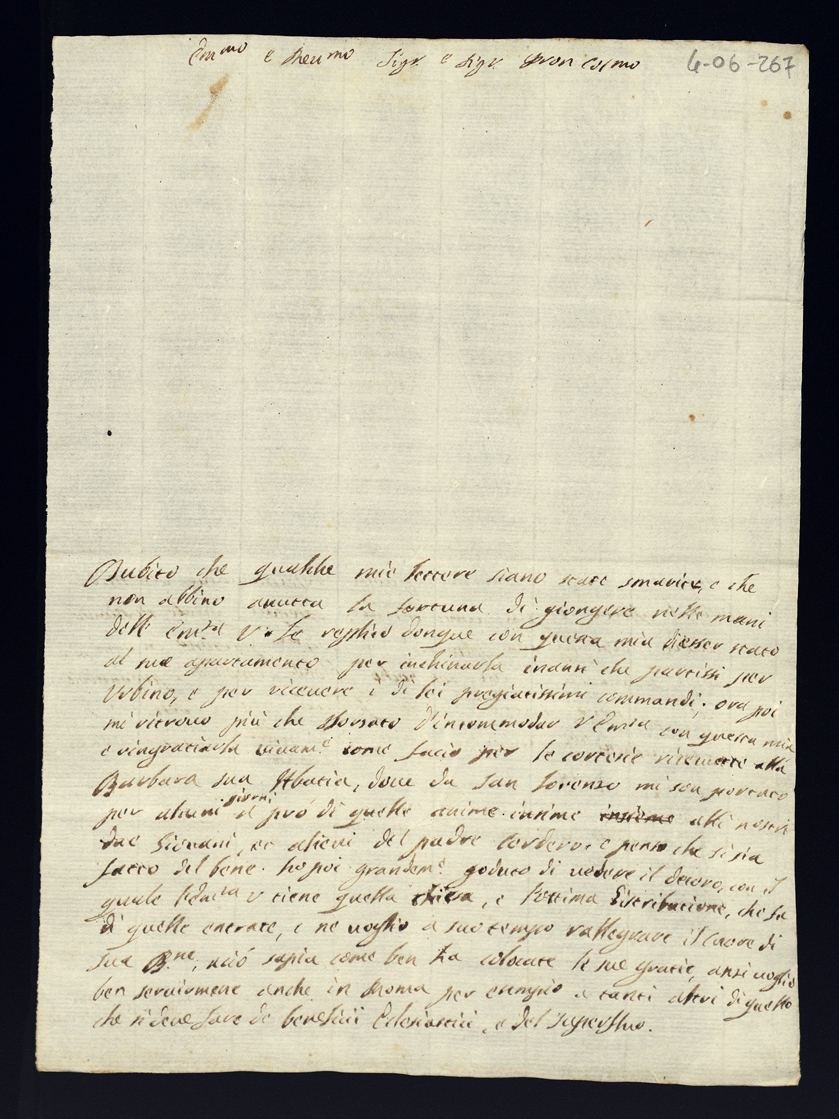 Em.mo e Reu.mo Sig.r e Sig.r Pron Colmo
4-06-267
Dubito che qualche mie lettere siano state smarite, e che
non abbino auuta la fortuna di giongere nelle mani
dell' Em.za V. Le replico donque con questa mia d'esser stato
al suo apartamento per inchinarla inansi che partissi per
Urbino, e per riceuere i di lei pregiatissimi commandi; ora poi
mi ritrouo più che sforsato d'incommodar V Em.za con questa mia
e ringratiarla uiuam.e come facio per le cortesie riceuute alla
Barbara sua Abatia, doue da San Lorenso mi son portato
per alcuni giorni al prò di quelle anime insime insieme alli nostri
due Giouani, et alieui del padre Cordero; e penso che si sia
fatto del bene. ho poi grandem.e goduto di uedere il decoro, con il
quale l'Em.za V tiene quella chiesa, e l'ottima distribuzione, che fa
di quelle entrate, e ne uoglio a suo tempo rallegrare il cuore di
sua B.ne, aciò sapia come ben ha colocate le sue gratie, ansi uoglio
ben seruirmene anche in Roma per esempio a tanti altri di quello
che si deue fare de beneficii Eclesiastici, e del superfluo.